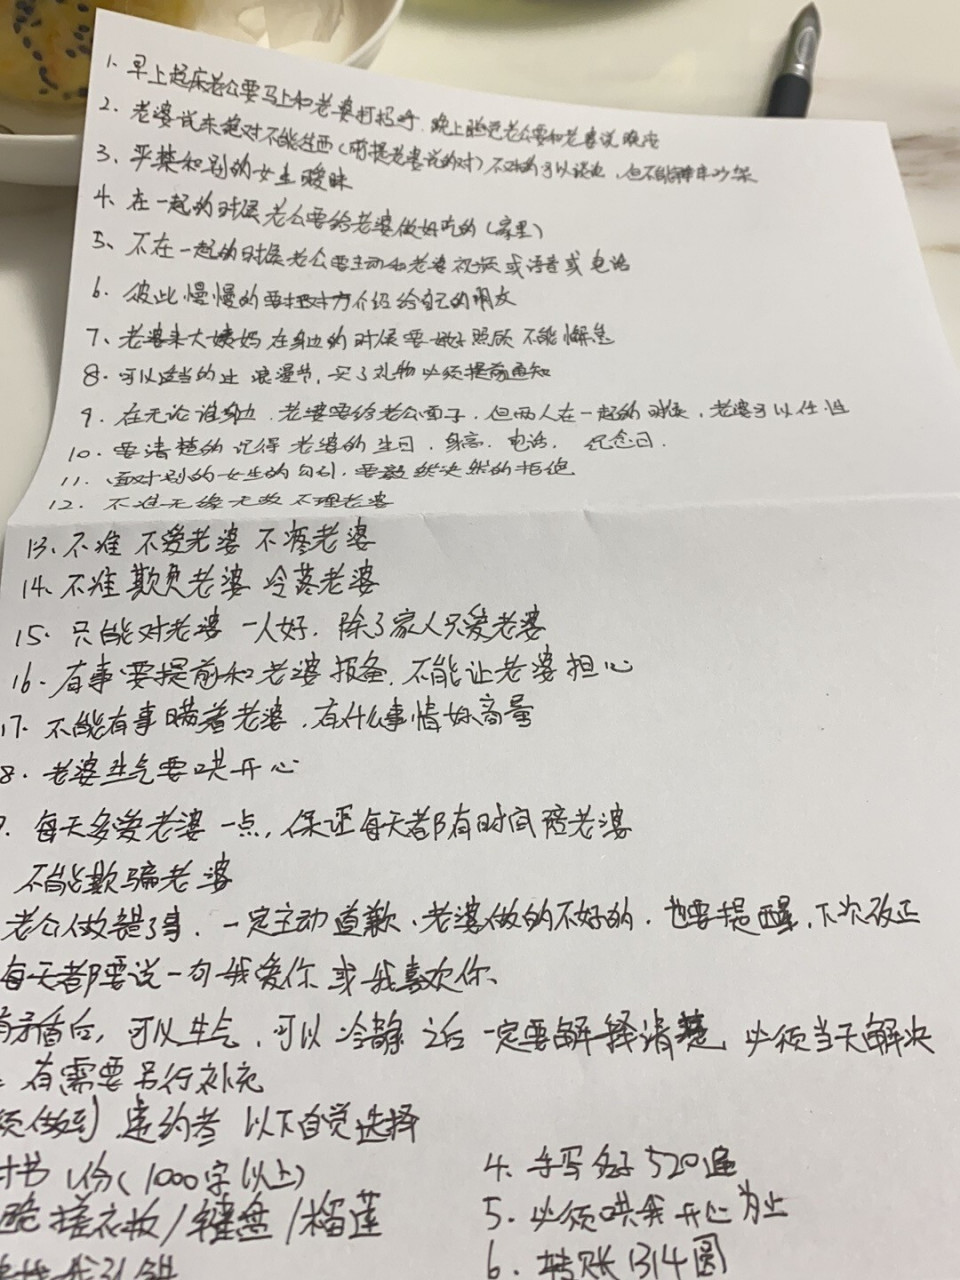 1. 早上起床老公要马上和老婆打招呼，晚上睡觉老公要和老婆说晚安
2. 老婆说东绝对不能往西（前提老婆说的对）不对的可以谈，但不能吵架
3. 严禁和别的女生暧昧
4. 在一起的时候老公要给老婆做好吃的（家里）
5、不在一起的时候老公要主动和老婆视频或语音或电话
6、彼此慢慢的要把对方介绍给自己的朋友
7、老婆来大姨妈在身边的时候要好好照顾 不能懈怠
8. 可以适当的过 浪漫节，买了礼物必须提前通知
9. 在无论谁身边，老婆要给老公面子，但两人在一起的时候，老婆可以任性
10. 要清楚的记得老婆的生日．身高．电话． 纪念日．
11. 面对别的女生的勾引，要毅然决然的拒绝
12. 不准无缘无故不理老婆
13. 不准 不爱老婆 不疼老婆
14. 不准欺负老婆 冷落老婆
15. 只能对老婆 一人好．除了家人只爱老婆
16. 有事要提前和老婆报备，不能让老婆担心
17. 不能有事瞒着老婆，有什么事情好商量
8. 老婆生气要哄开心
每天多爱老婆一点，保证每天都有时间陪老婆
不能欺骗老婆
老公做错了事．一定主动道歉、老婆做的不好的．也要提醒，下次改正
每天都要说一句我爱你 或我喜欢你、
有矛盾后，可以生气，可以 冷静 之后 一定要解释清楚 必须当天解决
有需要另行补充
须做到 违约者 以下自觉选择
讨书 1份（1000字以上）
跪 搓衣板/键盘/榴莲
4. 手写名字520遍
5. 必须哄我开心为止
6. 转账1314圆